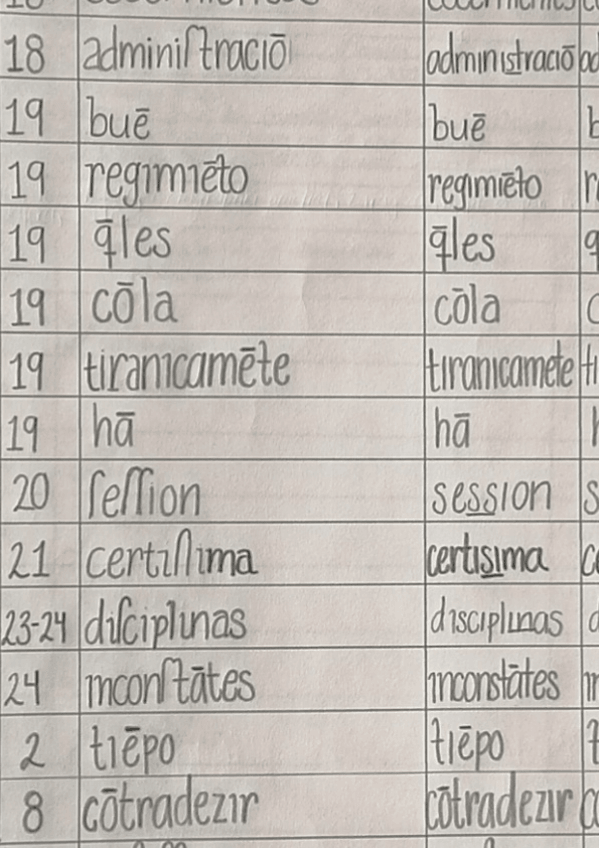 18 adminiſtraciō administraciō
19 buē buē
19 regimiēto regimiēto
19 q̄les q̄les
19 cōla cōla
19 tiranicamēte tiranicamete
19 hā hā
20 ſeſſion session
21 certiſſima certisima
23-24 diſciplinas disciplinas
24 inconſtātes inconstātes
2 tiēpo tiēpo
8 cōtradezir cōtradezir